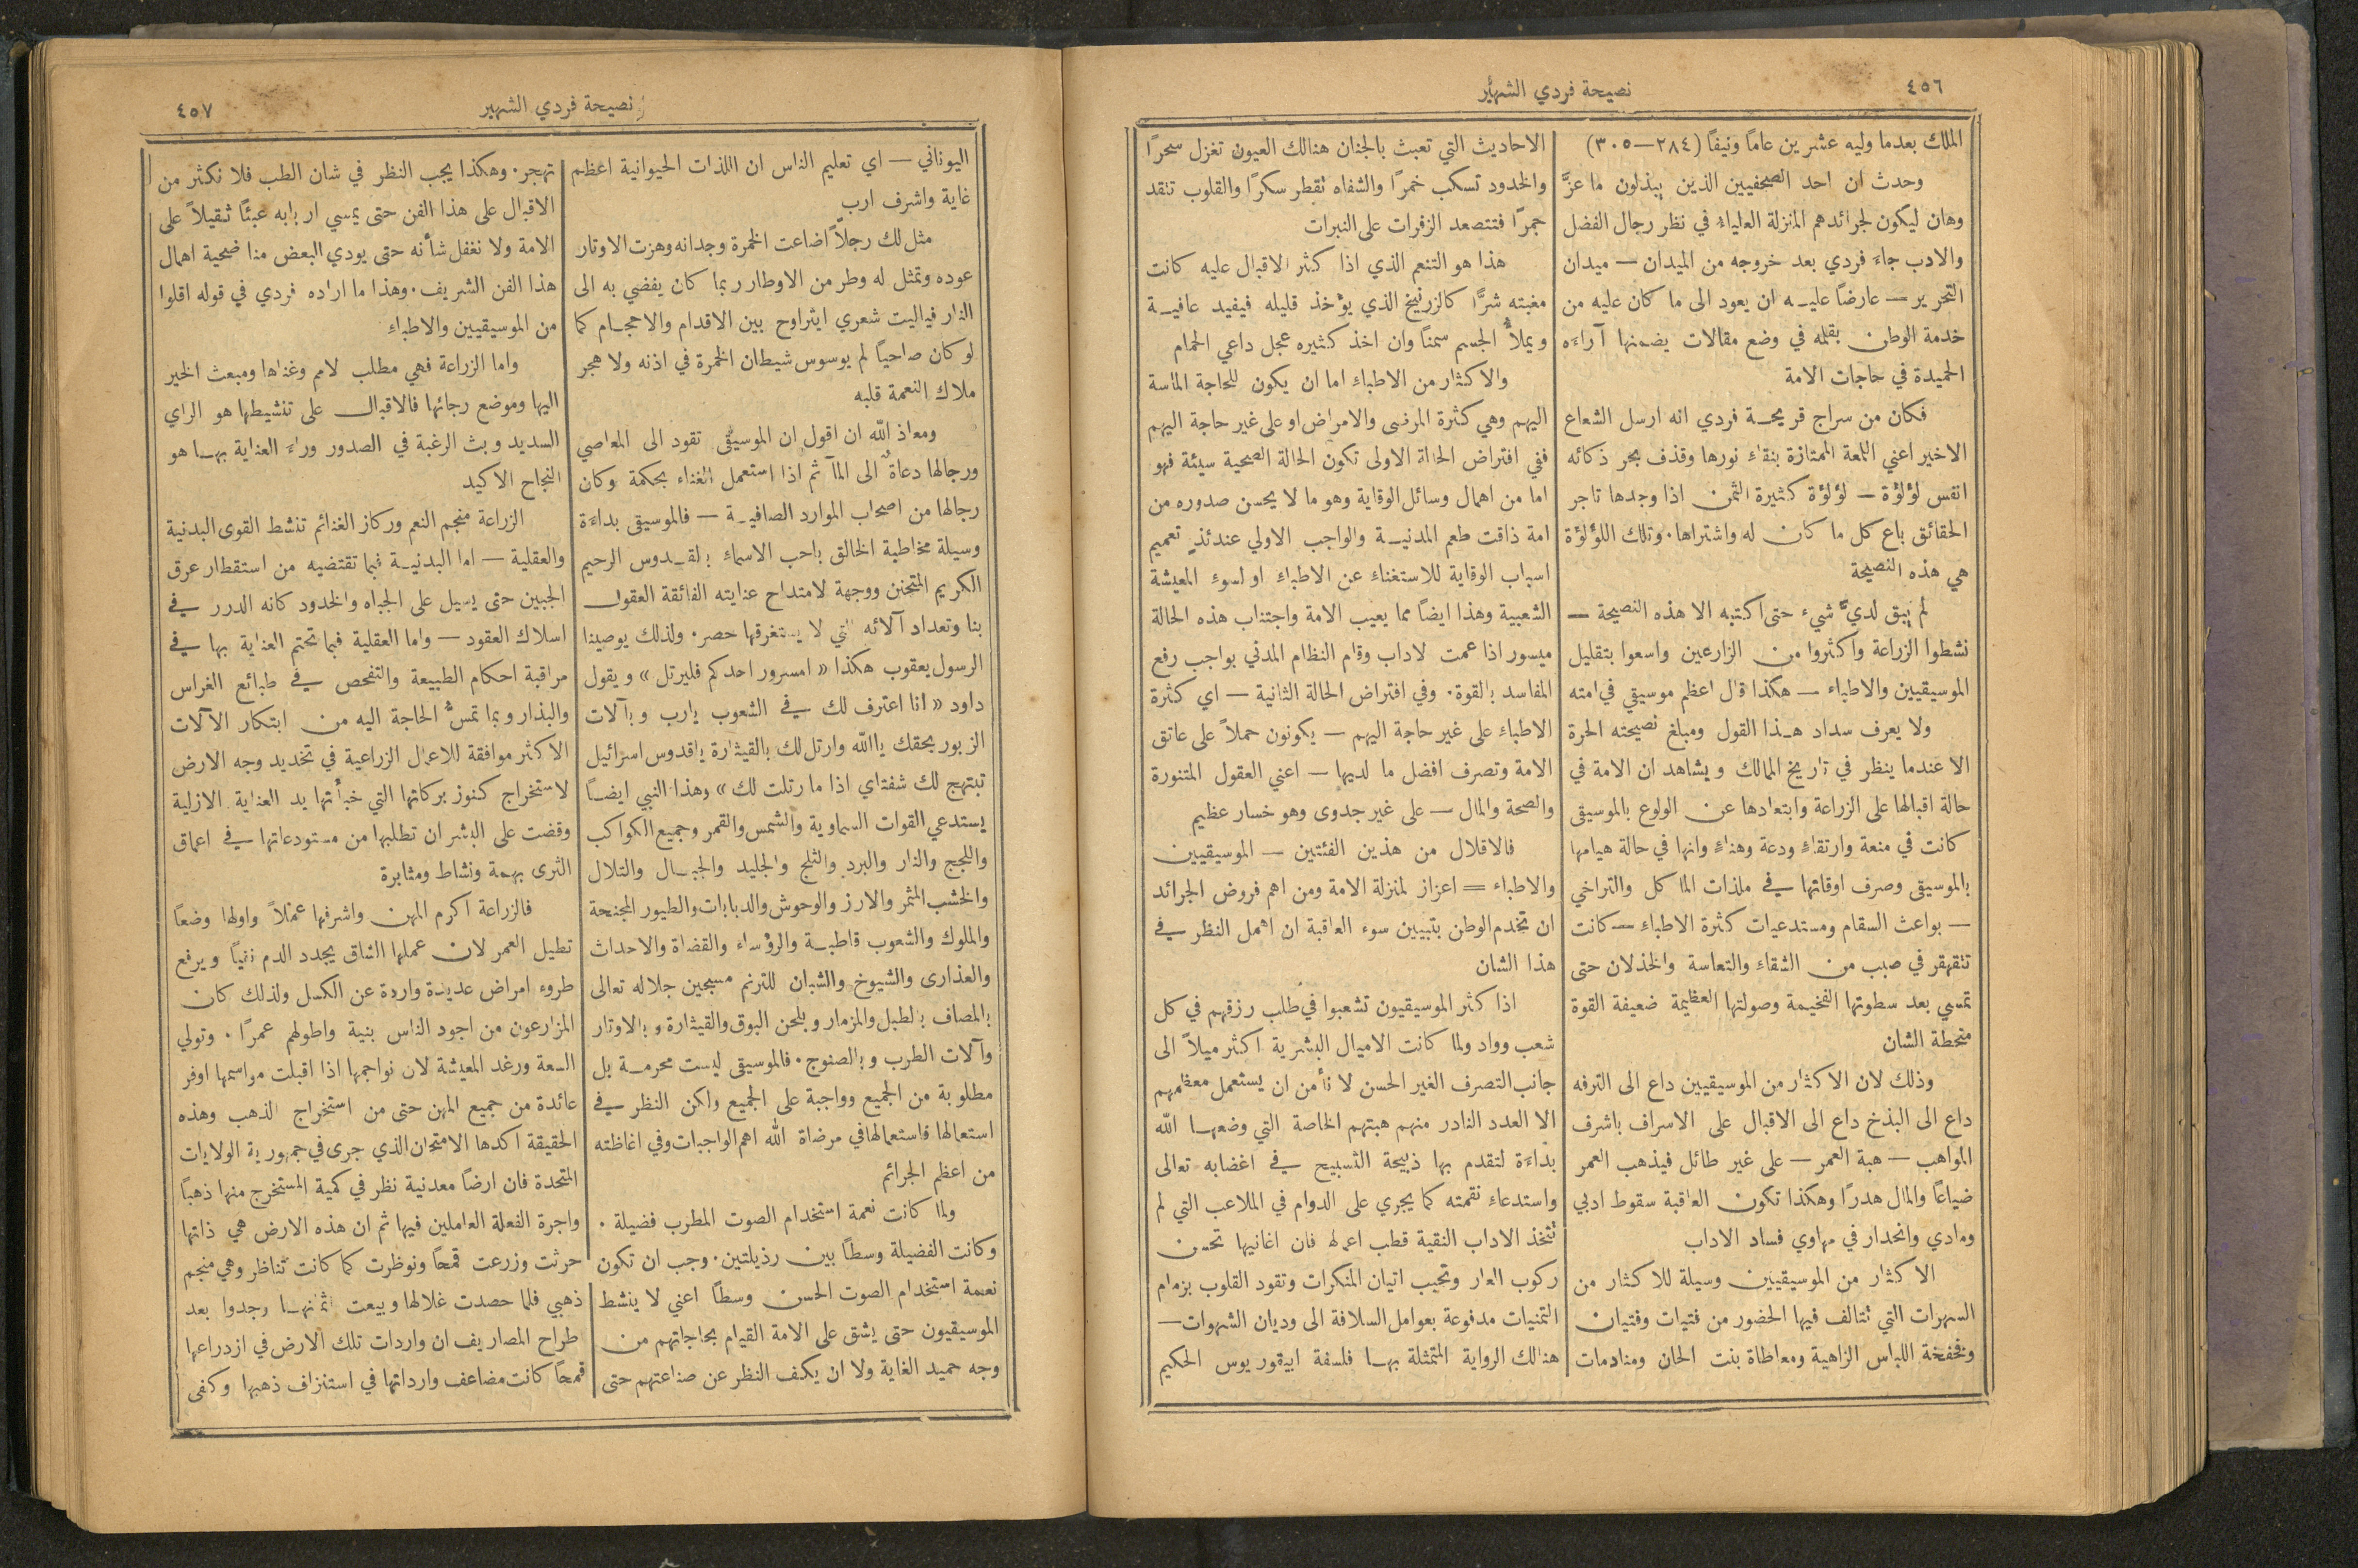 ٤٥٦
نصيحة فردي الشهير
الملك بعدما وليه عشرين عاماً ونيفاً (٢٨٤—٣٠٥)
وحدث ان احد الصحفيين الذين يبذلون ما عزَّ
وهان ليكون لجرائدهم المنزلة العلياء في نظر رجال الفضل
والادب جاء فردي بعد خروجه من الميدان — ميدان
التحرير — عارضاً عليه ان يعود الى ما كان عليه من
خدمة الوطن بقلمه في وضع مقالات يضمنها آراءه
الحميدة في حاجات الامة
فكان من سراج قريحة فردي انه ارسل الشعاع
الاخير اعني اللمعة الممتازة بنقاء نورها وقذف بحر ذكائه
انفس لؤلؤة — لؤلؤة كثيرة الثمن اذا وجدها تاجر
الحقائق باع كل ما كان له واشتراها. وتلك اللؤلؤة
هي هذه النصيحة
لم يبق لديَّ شيء حتى اكتبه الا هذه النصيحة —
نشطوا الزراعة واكثروا من الزارعين واسعوا بتقليل
الموسيقيين والاطباء — هكذا قال اعظم موسيقي في امته
ولا يعرف سداد هذا القول ومبلغ نصيحته الحرة
الا عندما ينظر في تاريخ الممالك ويشاهد ان الامة في
حالة اقبالها على الزراعة وابتعادها عن الولوع بالموسيقى
كانت في منعة وارتقاءٍ ودعة وهناءٍ وانها في حالة هيامها
بالموسيقى وصرف اوقاتها في ملذات الماكل والتراخي
— بواعث السقام ومستدعيات كثرة الاطباء — كانت
تتقهقر في صبب من الشقاء والتعاسة والخذلان حتى
تمسي بعد سطوتها الفخيمة وصولتها العظيمة ضعيفة القوة
منحطة الشان
وذلك لان الاكثار من الموسيقيين داع الى الترفه
داع الى البذخ داع الى الاقبال على الاسراف باشرف
المواهب — هبة العمر — على غير طائل فيذهب العمر
ضياعاً والمال هدراً وهكذا تكون العاقبة سقوط ادبي
ومادي وانحدار في مهاوي فساد الاداب
الاكثار من الموسيقيين وسيلة للاكثار من
السهرات التي تتالف فيها الحضور من فتيات وفتيان
وفخفخة اللباس الزاهية ومعاطاة بنت الحان ومنادمات
الاحاديث التي تعبث بالجنان هنالك العيون تغزل سحرًا
والخدود تسكب خمرًا والشفاه تقطر سكرًا والقلوب تتقد
جمرًا فتتصعد الزفرات على النبرات
هذا هو التنعم الذي اذا كثر الاقبال عليه كانت
مغبته شرًّا كالزرنيخ الذي يؤخذ قليله فيفيد عافية
ويملأُ الجسم سمناً وان اخذ كثيره عجل داعي الحمام
والاكثار من الاطباء اما ان يكون للحاجة الماسة
اليهم وهي كثرة المرضى والامراض او على غير حاجة اليهم
ففي افتراض الحالة الاولى تكون الحالة الصحية سيئة فهو
اما من اهمال وسائل الوقاية وهو ما لا يحسن صدوره من
امة ذاقت طعم المدنية والواجب الاولي عندئذٍ تعميم
اسباب الوقاية للاستغناء عن الاطباء او لسوء المعيشة
الشعبية وهذا ايضاً مما يعيب الامة واجتناب هذه الحالة
ميسور اذا عمت لاداب وقام النظام المدني بواجب رفع
المفاسد بالقوة. وفي افتراض الحالة الثانية — اي كثرة
الاطباء على غير حاجة اليهم — يكونون حملاً على عاتق
الامة وتصرف افضل ما لديها — اعني العقول المتنورة
والصحة والمال — على غير جدوى وهو خسار عظيم
فالاقلال من هذين الفئتين — الموسيقيين
والاطباء = اعزاز لمنزلة الامة ومن اهم فروض الجرائد
ان تخدم الوطن بتبيين سوء العاقبة ان اهمل النظر في
هذا الشان
اذا كثر الموسيقيون تشعبوا في طلب رزقهم في كل
شعب وواد ولما كانت الاميال البشرية اكثر ميلاً الى
جانب التصرف الغير الحسن لا نأمن ان يستعمل معظمهم
الا العدد النادر منهم هبتهم الخاصة التي وضعها الله
بداءة لتقدم بها ذبيحة التسبيح في اغضابه تعالى
واستدعاء نقمته كما يجري على الدوام في الملاعب التي لم
تتخذ الاداب النقية قطب اعمالها فان اغانيها تحسن
ركوب العار وتحبب اتيان المنكرات وتقود القلوب بزمام
التمنيات مدفوعة بعوامل السلافة الى وديان الشهوات —
هنالك الرواية المتمثلة بها فلسفة ابيقوريوس الحكيم
نصيحة فردي الشهير
٤٥٧
اليوناني — اي تعليم الناس ان اللذات الحيوانية اعظم
غاية واشرف ارب
مثل لك رجلاً اضاعت الخمرة وجدانه وهزت الاوتار
عوده وتمثل له وطر من الاوطار ربما كان يفضي به الى
النار فياليت شعري ايتراوح بين الاقدام والاحجام كما
لو كان صاحياً لم يوسوس شيطان الخمرة في اذنه ولا هجر
ملاك النعمة قلبه
ومعاذ الله ان اقول ان الموسيقى تقود الى المعاصي
ورجالها دعاة الى المآثم اذا استعمل الغناء بحكمة وكان
رجالها من اصحاب الموارد الصافية — فالموسيقى بداءة
وسيلة مخاطبة الخالق باحب الاسماء بالقدوس الرحيم
الكريم المتحنن ووجهة لامتداح عنايته الفائقة العقول
بنا وتعداد آلائه التي لا يستغرقها حصر. ولذلك يوصينا
الرسول يعقوب هكذا « امسرور احدكم فليرتل » ويقول
داود « انا اعترف لك في الشعوب يارب وبآلات
الزبور بحقك يا الله وارتل لك بالقيثارة ياقدوس اسرائيل
تبتهج لك شفتاي اذا ما رتلت لك » وهذا النبي ايضاً
يستدعي القوات السماوية والشمس والقمر وجميع الكواكب
واللجج والنار والبرد والثلج والجليد والجبال والتلال
والخشب المثمر والارز والوحوش والدبابات والطيور المجنحة
والملوك والشعوب قاطبة والرؤساء والقضاة والاحداث
والعذارى والشيوخ والشبان للترنم مسبحين جلاله تعالى
بالمصاف بالطبل والمزمار وبلحن البوق والقيثارة وبالاوتار
وآلات الطرب وبالصنوج. فالموسيقى ليست محرمة بل
مطلوبة من الجميع وواجبة على الجميع ولكن النظر في
استعمالها فاستعمالها في مرضاة الله اهم الواجبات وفي اغاظته
من اعظم الجرائم
ولما كانت نعمة استخدام الصوت المطرب فضيلة.
وكانت الفضيلة وسطاً بين رذيلتين. وجب ان تكون
نعمة استخدام الصوت الحسن وسطاً اعني لا ينشط
الموسيقيون حتى يشق على الامة القيام بحاجاتهم من
وجه حميد الغاية ولا ان يكف النظر عن صناعتهم حتى
تهجر. وهكذا يجب النظر في شان الطب فلا نكثر من
الاقبال على هذا الفن حتى يمسي اربابه عبئاً ثقيلاً على
الامة ولا نغفل شأنه حتى يودي البعض منا ضحية اهمال
هذا الفن الشريف. وهذا ما اراده فردي في قوله اقلوا
من الموسيقيين والاطباء
واما الزراعة فهي مطلب لامم وغناها ومبعث الخير
اليها وموضع رجائها فالاقبال على تنشيطها هو الراي
السديد وبث الرغبة في الصدور وراء العناية بها هو
النجاح الاكيد
الزراعة منجم النعم وركاز الغنائم تنشط القوى البدنية
والعقلية — اما البدنية فبما تقتضيه من استقطار عرق
الجبين حتى يسيل على الجباه والخدود كانه الدرر في
اسلاك العقود — واما العقلية فبما تحتم العناية بها في
مراقبة احكام الطبيعة والتفحص في طبائع الغراس
والبذار وبما تمسُّ الحاجة اليه من ابتكار الآلات
الاكثر موافقة للاعمال الزراعية في تخديد وجه الارض
لاستخراج كنوز بركاتها التي خبأتها يد العناية الازلية
وقضت على البشر ان تطلبها من مستودعاتها في اعماق
الثرى بهمة ونشاط ومثابرة
فالزراعة اكرم المهن واشرفها عملاً واولها وضعاً
تطيل العمر لان عملها الشاق يجدد الدم نقياً ويرفع
طروء امراض عديدة واردة عن الكسل ولذلك كان
المزارعون من اجود الناس بنية واطولهم عمرًا. وتولي
السعة ورغد المعيشة لان نواجمها اذا اقبلت مواسمها اوفر
عائدة من جميع المهن حتى من استخراج الذهب وهذه
الحقيقة اكدها الامتحان الذي جرى في جمهورية الولايات
المتحدة فان ارضاً معدنية نظر في كمية المستخرج منها ذهباً
واجرة الفعلة العاملين فيها ثم ان هذه الارض هي ذاتها
حرثت وزرعت قمحاً ونوظرت كما كانت تناظر وهي منجم
ذهبي فلما حصدت غلالها وبيعت اثمانها وجدوا بعد
طراح المصاريف ان واردات تلك الارض في ازدراعها
قمحاً كانت مضاعف وارداتها في استنزاف ذهبها وكفى